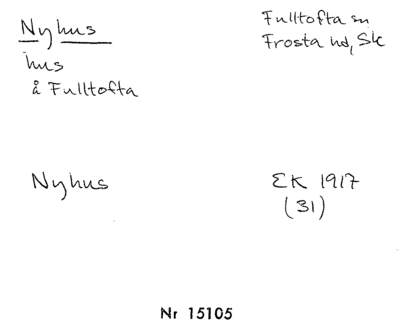 Nyhus
Fulltofta sn
Frosta hd, Sk
hus
å Fulltofta
Nyhus
EK 1917
(31)
Nr 15105